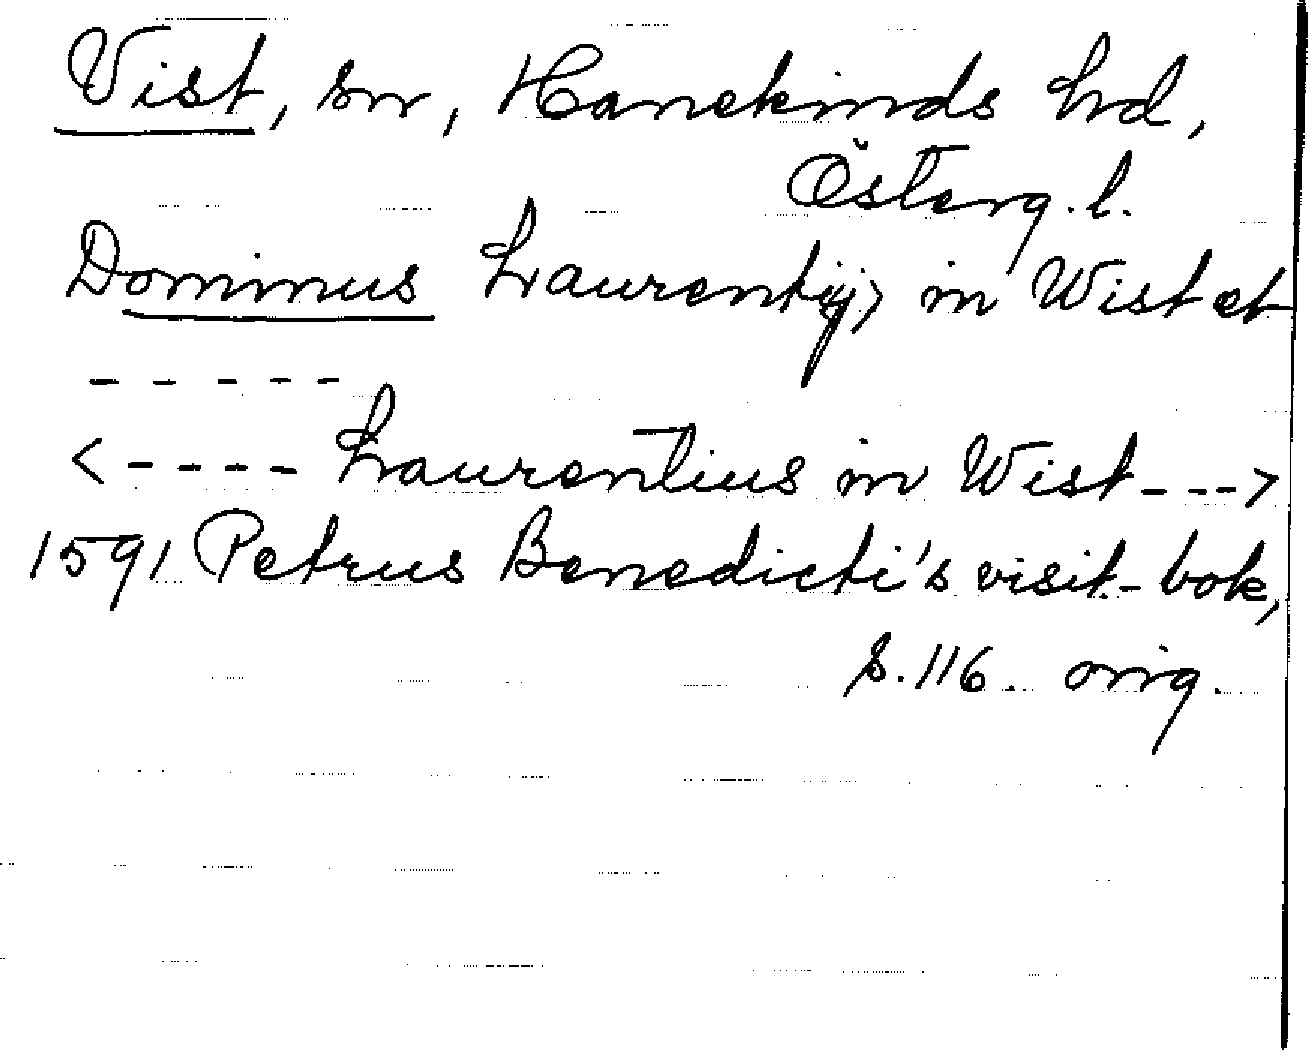 Vist, sn, Hanekinds hd,
Österg. l.
Dominus Laurentij, in Wist et
- - - - -
<- - - - Laurentius in Wist - - ->
1591 Petrus Benedicti's visit.-bok,
s. 116. orig.